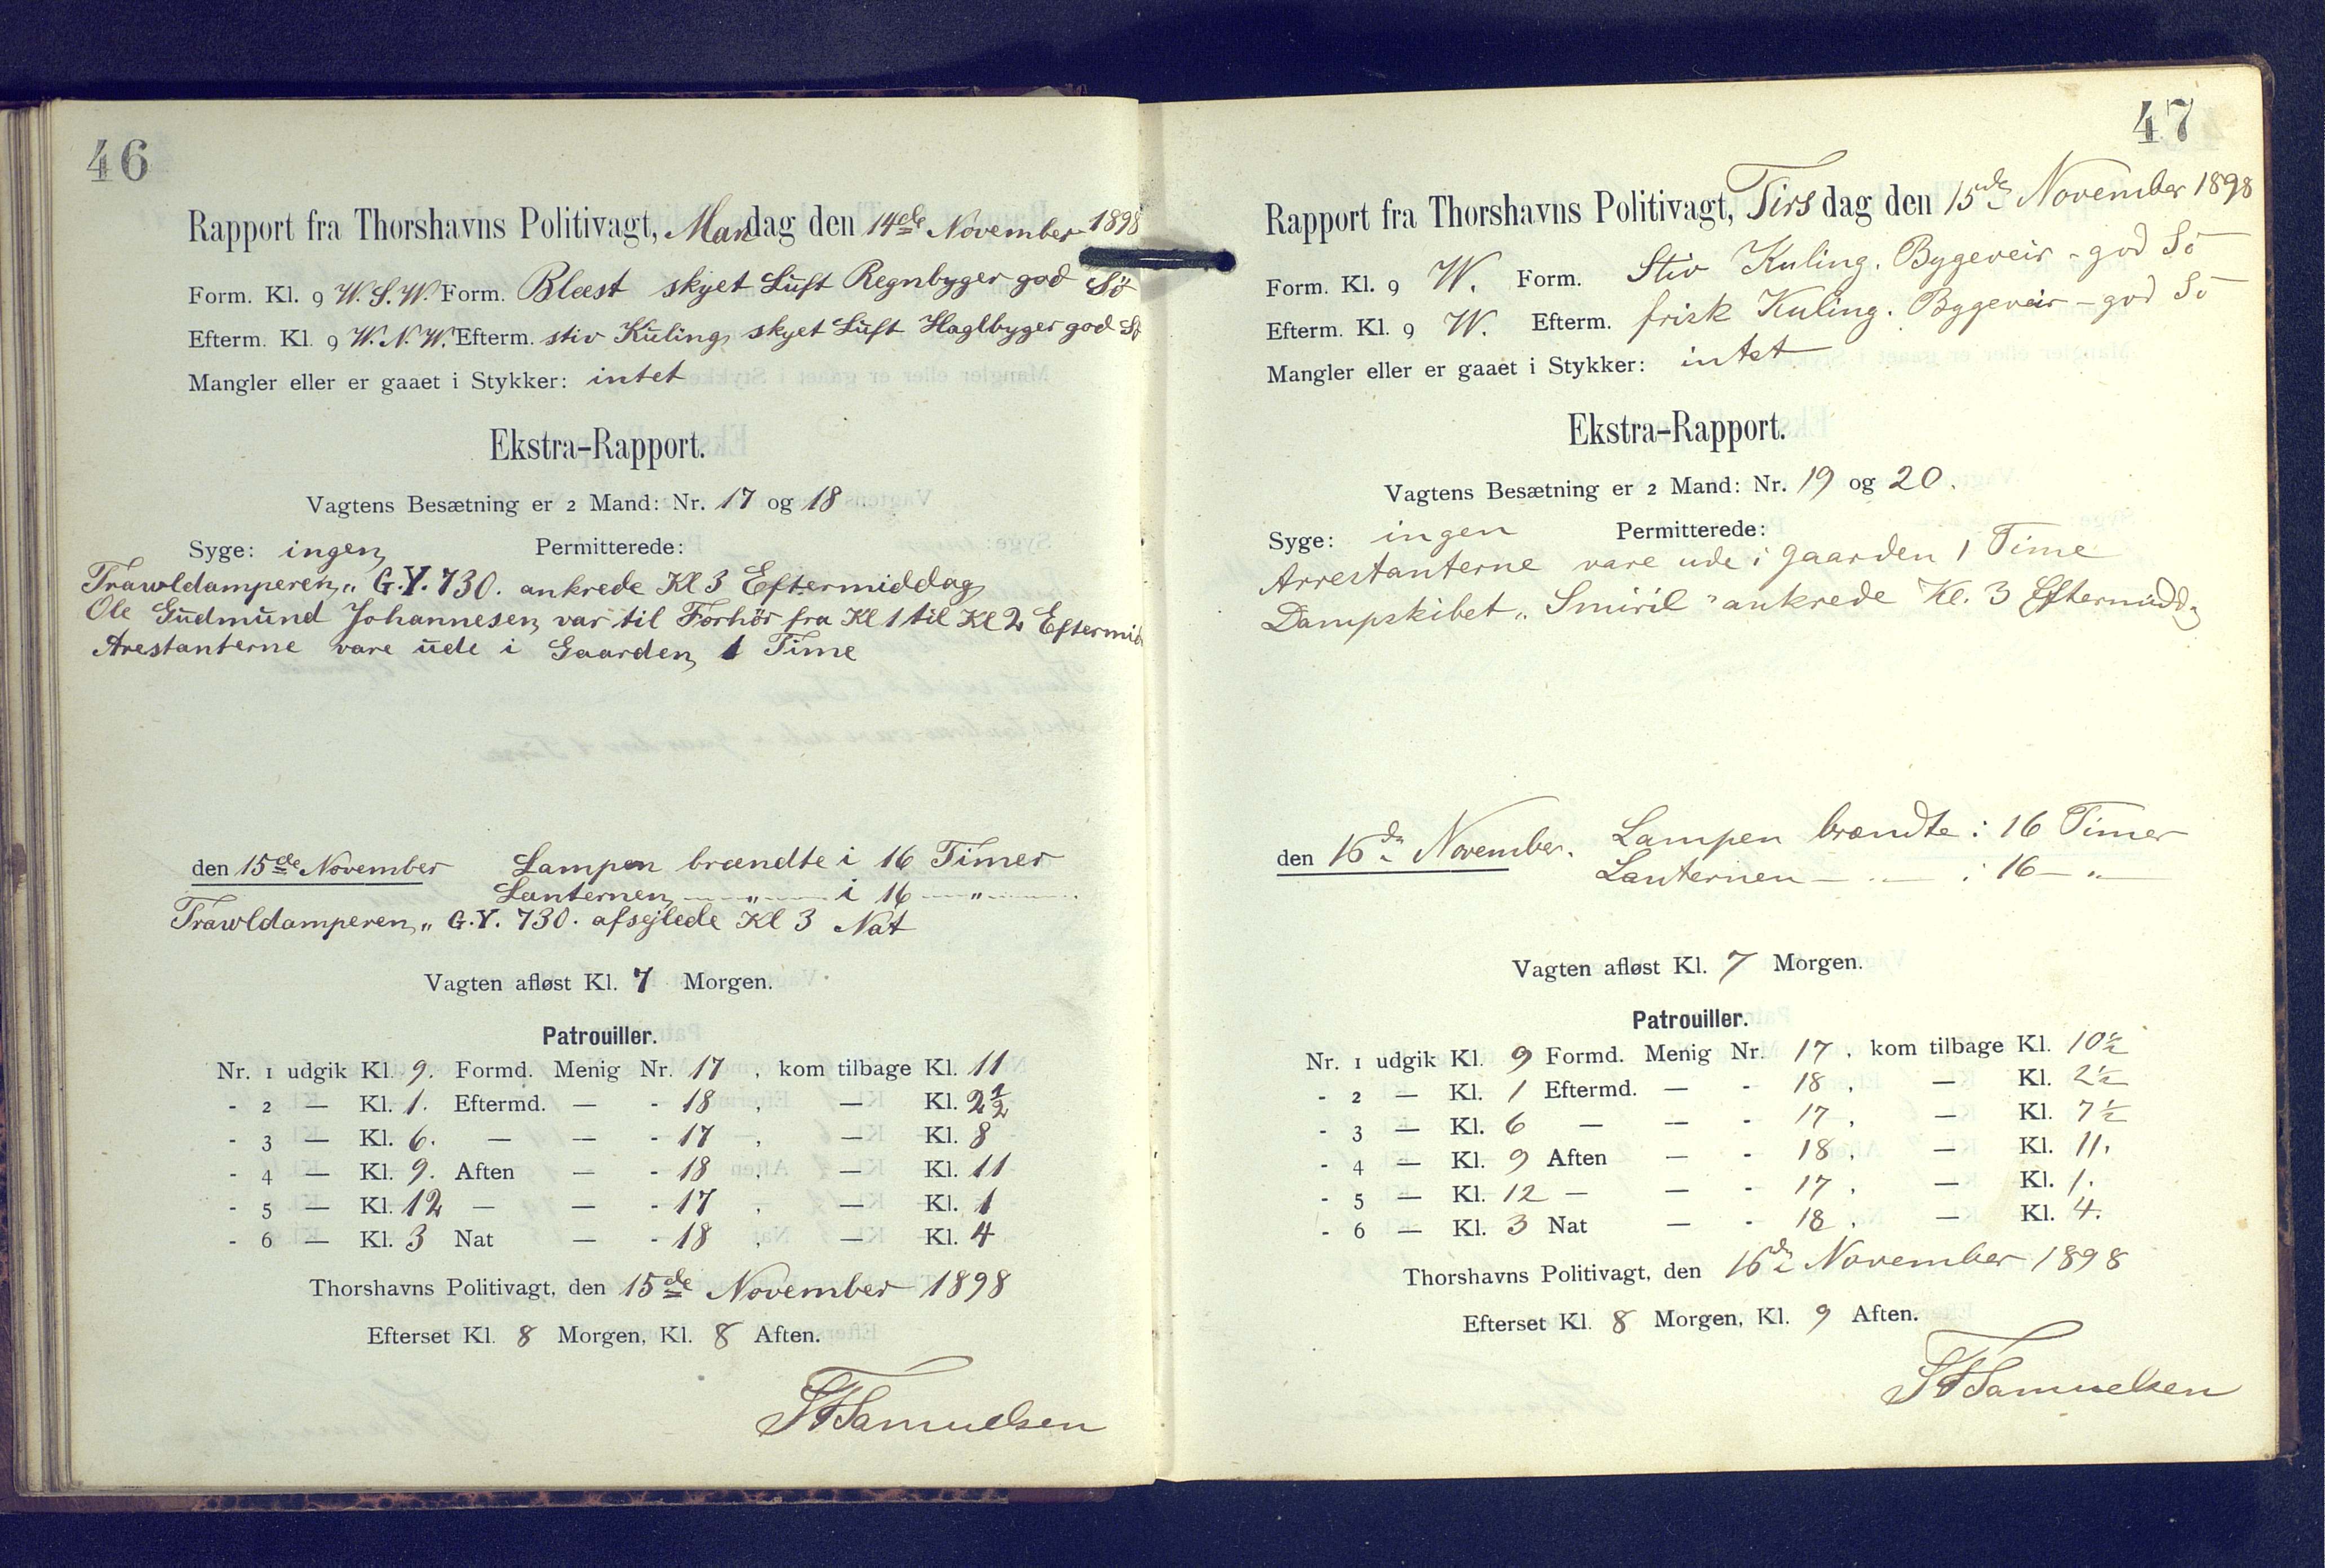 46
Rapport fra Thorshavns Politivagt, Mandag den 14de November 1898
Form. Kl. 9 W.S.W. Form. Blæst skyet Luft Regnbyger god Sö
Efterm. Kl. 9 W.N.W. Efterm. stiv Kuling, skyet Luft Haglbyger god Sö
Mangler eller er gaaet i Stykker: intet
Ekstra-Rapport.
Vagtens Besætning er 2 Mand: Nr. 17 og 18
Syge: ingen Permitterede:
Trawldamperen „ G.Y. 730. ankrede Kl 3 Eftermiddag
Ole Gudmund Johannesen var til Forhör fra Kl 1 til Kl 2 Eftermid
Arestanterne vare ude i Gaarden 1 Time
den 15de November Lampen brændte i 16 Timer
Lanternen — „ — i 16 — „ —
Trawldamperen „ G.Y. 730. afsejlede Kl 3 Nat
Vagten afløst Kl. 7 Morgen.
Patrouiller.
Nr. 1 udgik Kl. 9. Formd. Menig Nr. 17, kom tilbage Kl. 11
- 2 — Kl. 1. Eftermd. — - 18, — Kl. 2½
- 3 — Kl. 6. — — - 17, — Kl. 8
- 4 — Kl. 9. Aften — - 18, — Kl. 11
- 5 — Kl. 12 — — - 17, — Kl. 1
- 6 — Kl. 3 Nat — - 18, — Kl. 4
Thorshavns Politivagt, den 15de November 1898
Efterset Kl. 8 Morgen, Kl. 8 Aften.
Samuelsen
47
Rapport fra Thorshavns Politivagt, Tirsdag den 15de November 1898
Form. Kl. 9 W. Form. Stiv Kuling. Bygeveir - god Sö
Efterm. Kl. 9 W. Efterm. frisk Kuling. Byggeveir - god Sö
Mangler eller er gaaet i Stykker: intet
Ekstra-Rapport.
Vagtens Besætning er 2 Mand: Nr. 19 og 20.
Syge: ingen Permitterede:
Arrestanterne vare ude i Gaarden 1 Time
Dampskibet „ Smiril " ankrede Kl. 3 Eftermidd.
den 16de November. Lampen brændte i 16 Timer
Lanternen — „ — i 16 — „ —
Vagten afløst Kl. 7 Morgen.
Patrouiller.
Nr. 1 udgik Kl. 9 Formd. Menig Nr. 17, kom tilbage Kl. 10½
- 2 — Kl. 1 Eftermd. — - 18, — Kl. 2½
- 3 — Kl. 6 — — - 17, — Kl. 7½
- 4 — Kl. 9 Aften — - 18, — Kl. 11.
- 5 — Kl. 12 — — - 17, — Kl. 1.
- 6 — Kl. 3 Nat — - 18, — Kl. 4.
Thorshavns Politivagt, den 16de November 1898
Efterset Kl. 8 Morgen, Kl. 9 Aften.
Samuelsen